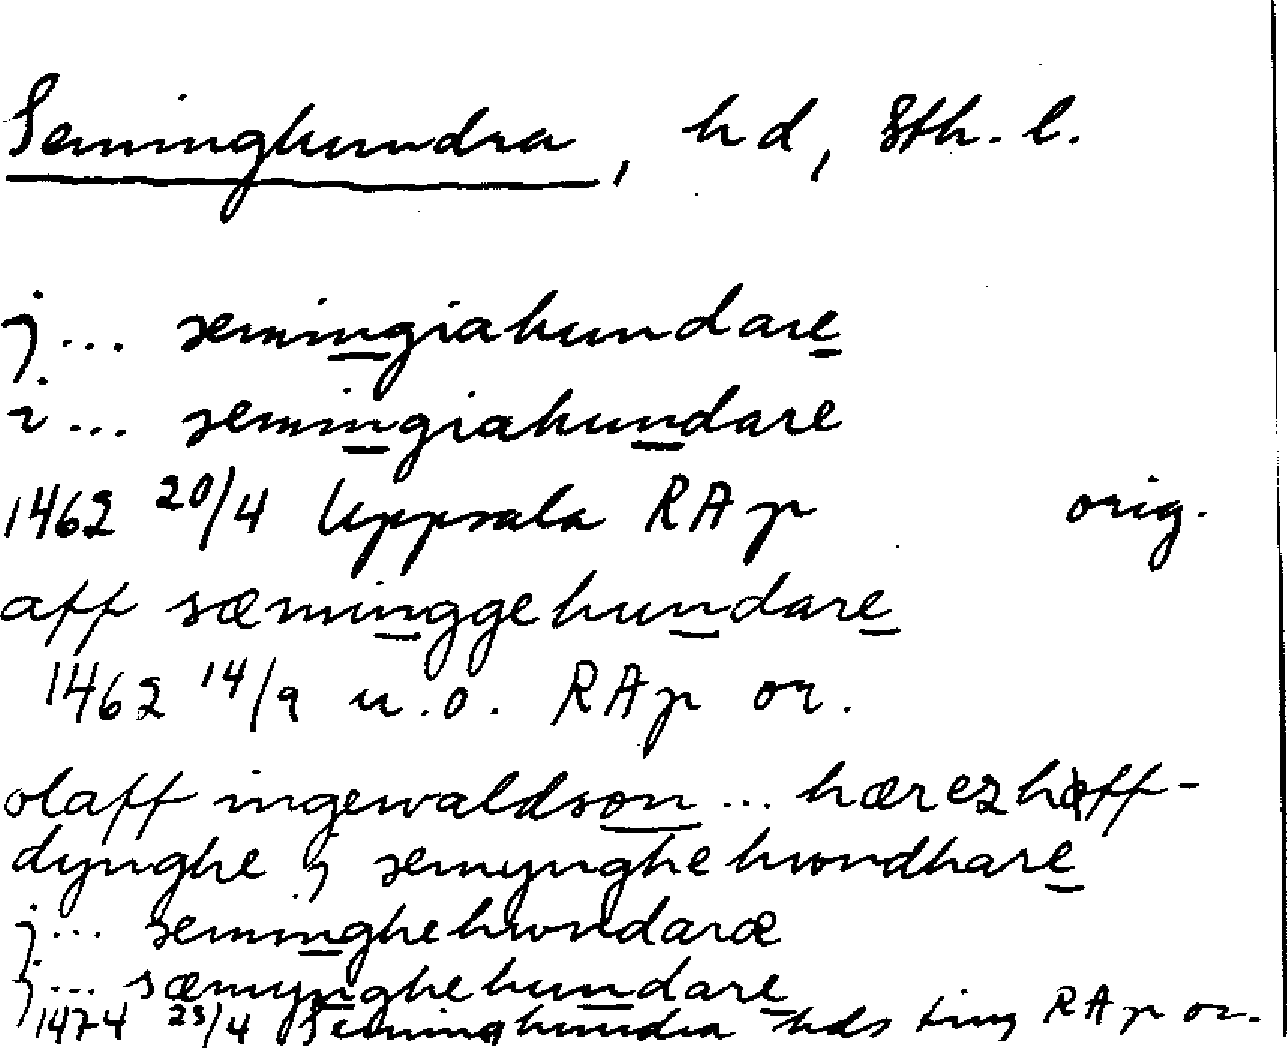 Seminghundra, hd, Sth. l.
j... semingiahundare
i... semingiahundare
1462 20/4 Uppsala RAp orig.
aff sæminggehundare
1462 14/9 u.o. RAp or.
olaff ingewaldson ... hærezhøff-
dynghe j semynghehwndhare
j... seminghehwndaræ
j... sæmynghehundare
1474 23/4 Seminghundra hds ting RAp or.